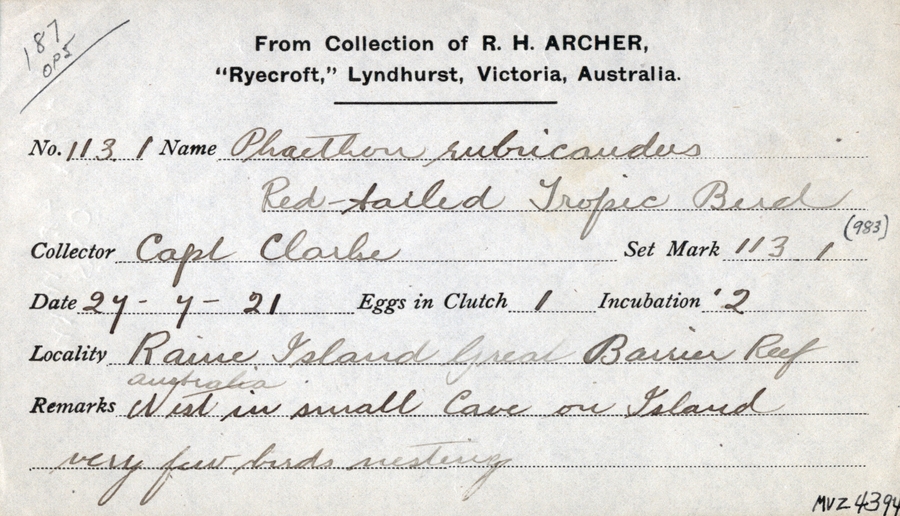 187
OPS
From Collection of R. H. ARCHER,
"Ryecroft," Lyndhurst, Victoria, Australia.
No. 113 1 Name Phaethon rubricaudus
Red-tailed Tropic Bird
Collector Capt Clarke Set Mark 113 1 (983)
Date 27 - 7 - 21 Eggs in Clutch 1 Incubation 2
Locality Raine Island Great Barrier Reef
australia
Remarks Nest in small Cave on Island
very few birds nesting
MVZ 4394